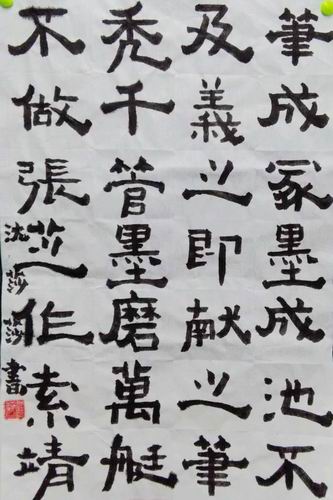 筆成冢墨成池不
及羲之即献之筆
秃千管墨磨萬艇
不做張芝作索靖
沈莎莎書